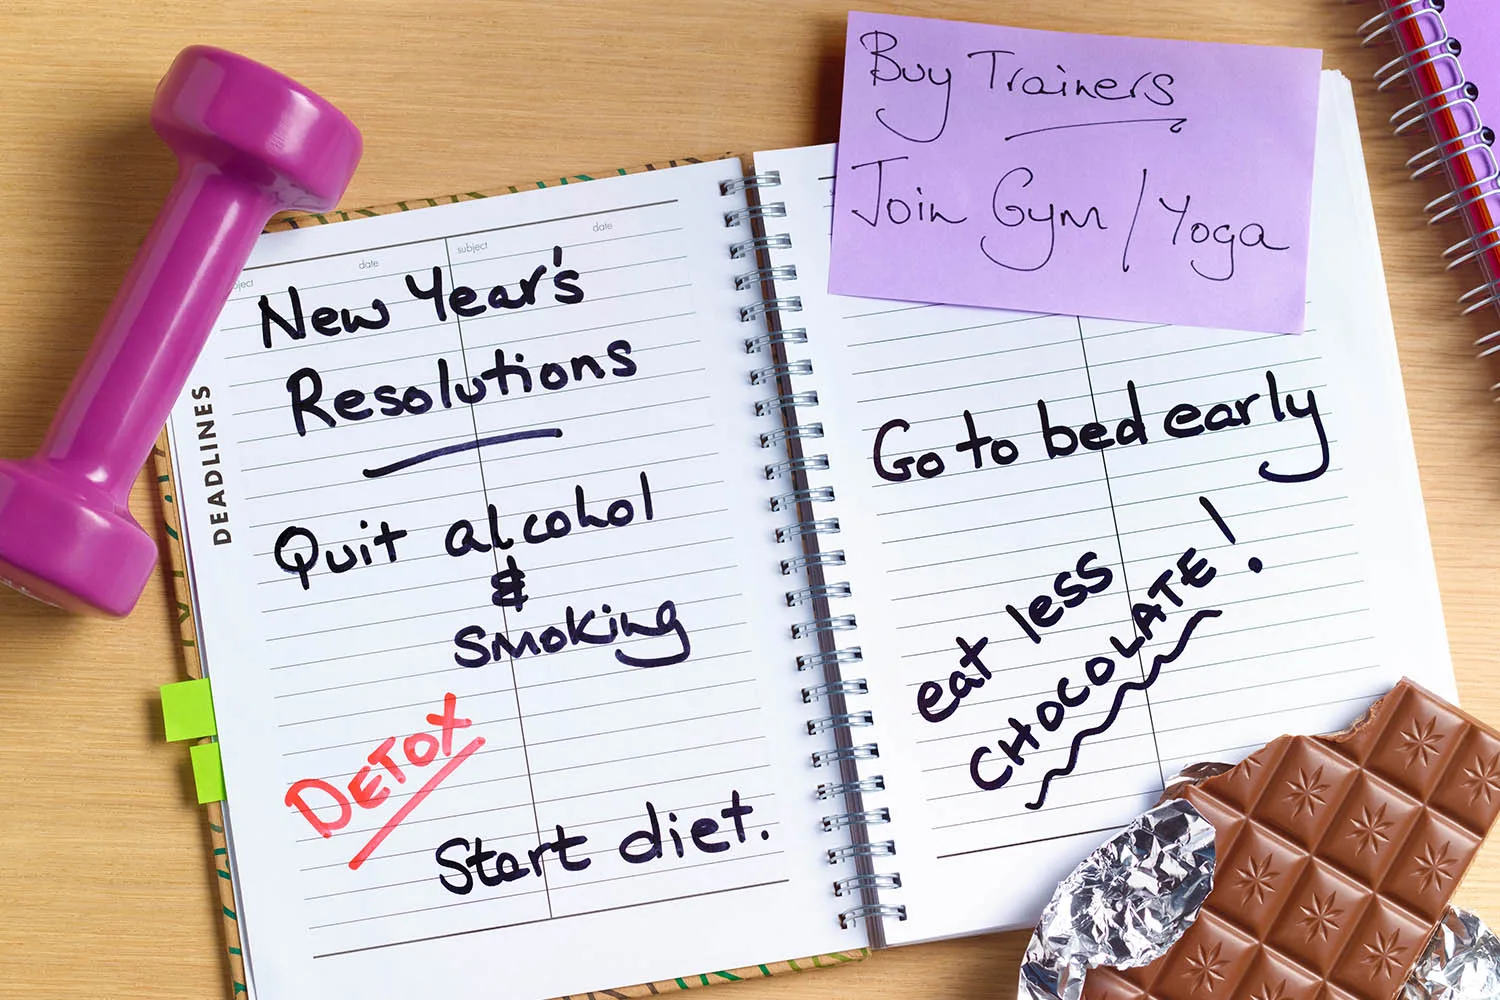 Buy Trainers
Join Gym / Yoga
subject
date
date
ject
DEADLINES
New Year's
Resolutions
Quit alcohol
&
smoking
DETOX
Start diet.
Go to bed early
eat less
CHOCOLATE!